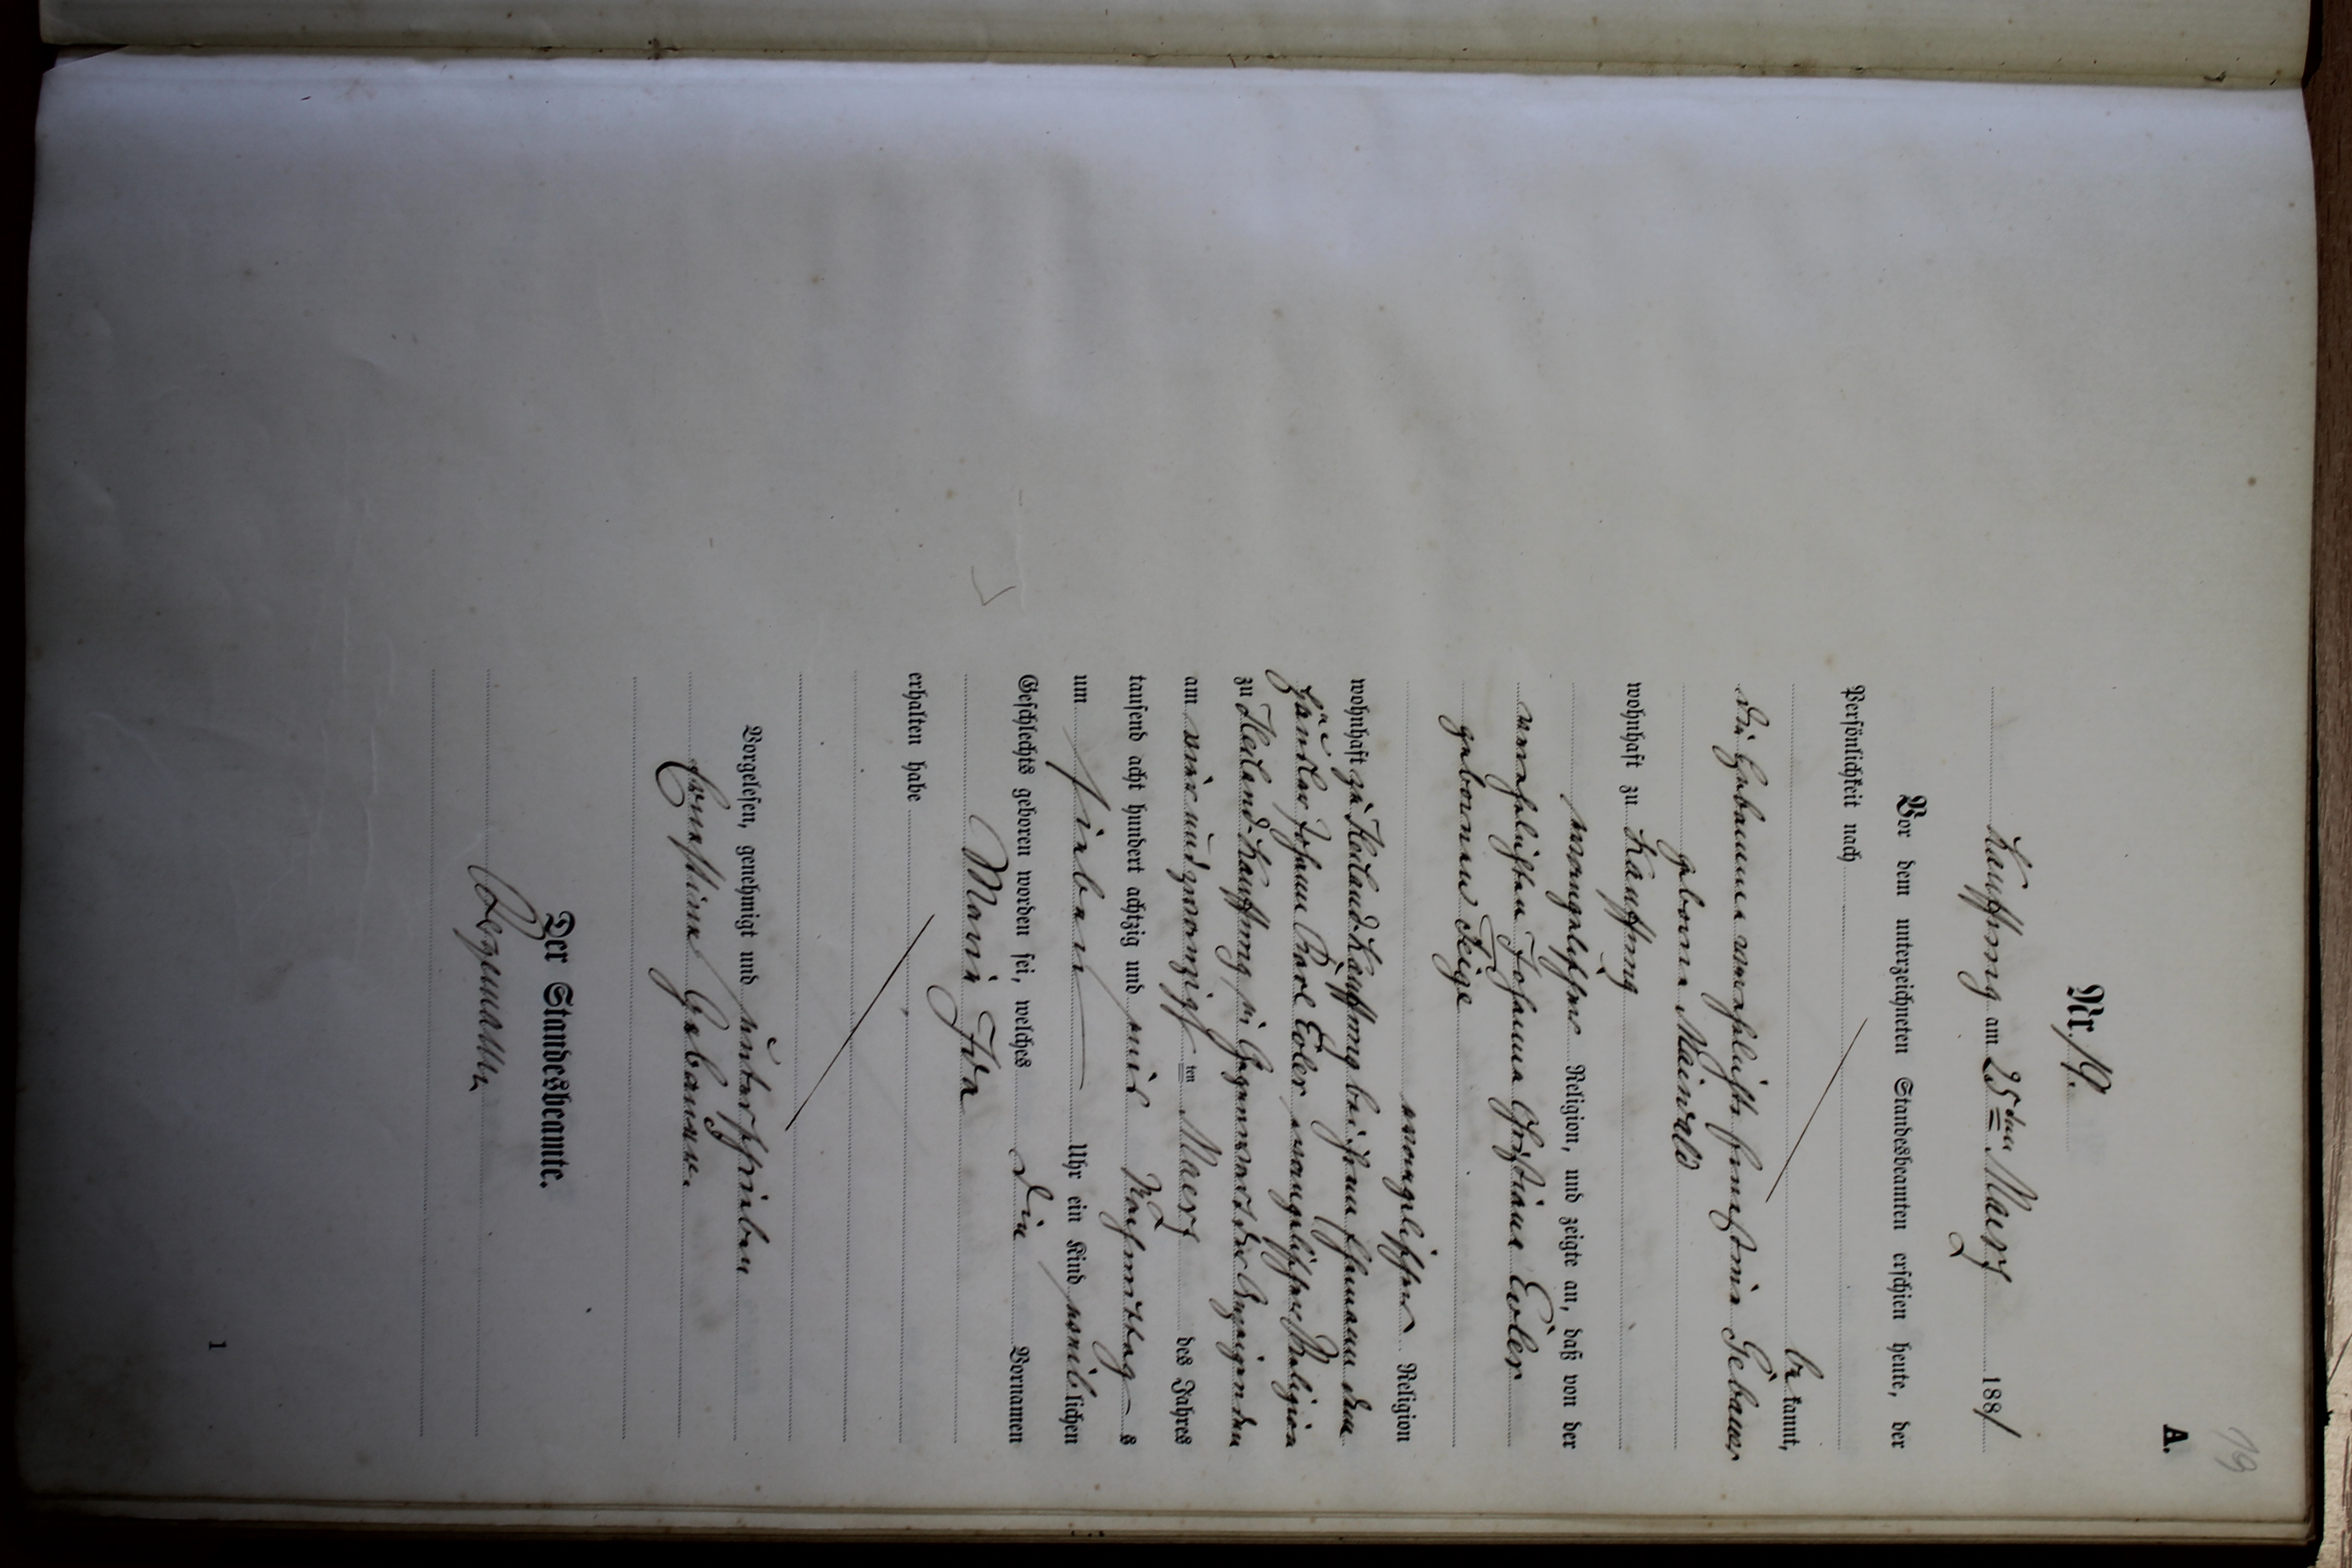 19
A.
Nr. 19.
Kauffung am 25ten Maerz 1881
Vor dem unterzeichneten Standesbeamten erschien heute, der
Persönlichkeit nach
bekannt,
die Hebamme verehelichte Ernestine Gebauer
geborne Mainwald
wohnhaft zu Kauffung
evangelischer Religion, und zeigte an, daß von der
verehelichten Johanne Christiane Evler
gebornen Feige
evangelischer Religion
wohnhaft zu Heiland-Kauffung bei ihrem Ehemann dem
Händler Johann Karl Evler, evangelischer Religion
zu Heiland-Kauffung in Gegenwart der Anzeigenden
am vier und zwanzigsten Maerz des Jahres
tausend acht hundert achtzig und eins Nachmittags
um sieben Uhr ein Kind weiblichen
Geschlechts geboren worden sei, welches die Vornamen
Marie Ida
erhalten habe
Vorgelesen, genehmigt und unterschrieben
Ernestine Gebauer.
Der Standesbeamte.
1